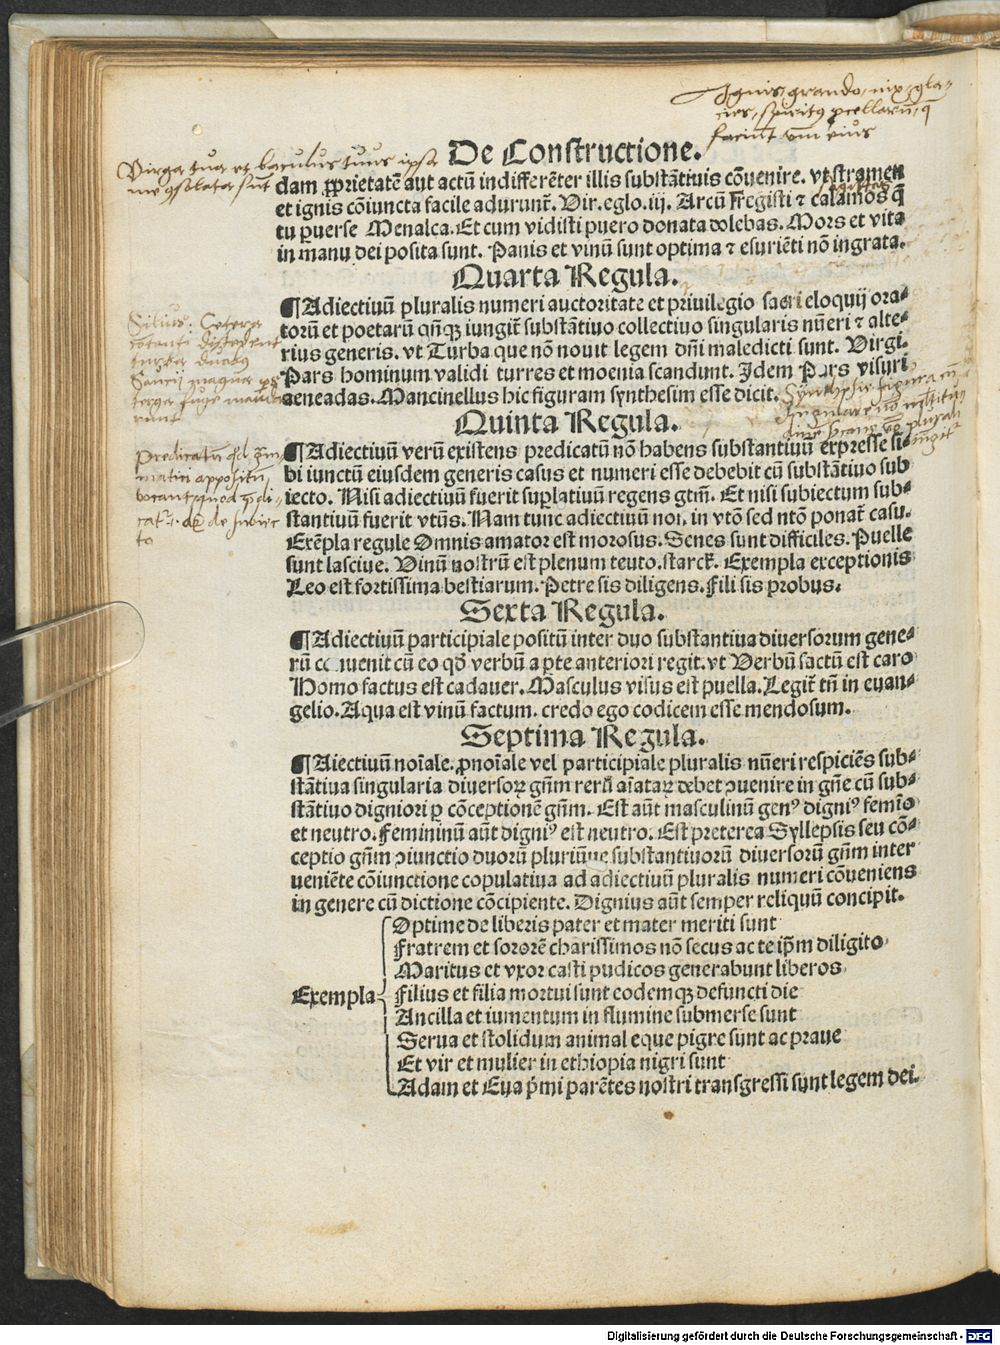 Ignis, grando, nix, gla-
cies, spiritus ꝓcellarū, q̄
faciūt vm̄ eius
Virga tua et baculus tuus ipsa
me ꝯsolata sūt
De Constructione.
dam ꝓprietatē aut actū indifferēter illis substātiuis cōuenire. vt stramen
et ignis cōiuncta facile adurunt᷑. Vir. eglo. iij. Arcū fregisti ⁊ calamos q̄
tu ꝑuerse Menalca. Et cum vidisti puero donata dolebas. Mors et vita
in manu dei posita sunt. Panis et vinū sunt optima ⁊ esuriēti nō ingrata.
Quarta Regula.
¶Adiectiuū pluralis numeri auctoritate et priuilegio sacri eloquij ora-
torū et poetarū qn̄qꝫ iungit᷑ substātiuo collectiuo singularis nūeri ⁊ alte-
rius generis. vt Turba que nō nouit legem dn̄i maledicti sunt. Virgi.
Pars hominum validi turres et moenia scandunt. Idem Pars visuri
aeneadas. Mancinellus hic figuram synthesim esse dicit.
Silius: Cetera
Quinta Regula.
¶Adiectiuū verū existens predicatū nō habens substantiuū expresse si-
bi iunctū eiusdem generis casus et numeri esse debebit cū substātiuo sub
iecto. Nisi adiectiuū fuerit suꝑlatiuū regens gtm̄. Et nisi subiectum sub-
stantiuū fuerit vtūs. Nam tunc adiectiuū non in vtō sed ntō ponat᷑ casu.
Exēpla regule Omnis amator est morosus. Senes sunt difficiles. Puelle
sunt lasciue. Vinū nostrū est plenum teuto. starck. Exempla exceptionis
Leo est fortissima bestiarum. Petre sis diligens. Fili sis probus.
Sexta Regula.
¶Adiectiuū participiale positū inter duo substantiua diuersorum gene-
rū conuenit cū eo qd̄ verbū a ꝑte anteriori regit. vt Verbū factū est caro
Homo factus est cadauer. Masculus visus est puella. Legit᷑ tn̄ in euan-
gelio. Aqua est vinū factum. credo ego codicem esse mendosum.
Septima Regula.
¶Aiectiuū noīale. ꝓnoīale vel participiale pluralis nūeri respiciēs sub-
stātiua singularia diuersoꝝ gn̄m rerū aīataꝝ debet ꝯuenire in gn̄e cū sub-
stātiuo digniori ꝑ cōceptionē gn̄m. Est aūt masculinū genꝰ digniꝰ femīo
et neutro. Femininū aūt digniꝰ est neutro. Est preterea Syllepsis seu cō-
ceptio gn̄m ꝯiunctio duorū pluriūue substantiuorū diuersorū gn̄m inter
ueniēte cōiunctione copulatiua ad adiectiuū pluralis numeri cōueniens
in genere cū dictione cōcipiente. Dignius aūt semper reliquū concipit.
Exempla
Optime de liberis pater et mater meriti sunt
Fratrem et sororē charissimos nō secus ac te ip̄m diligito
Maritus et vxor casti pudicos generabunt liberos
Filius et filia mortui sunt eodemqꝫ defuncti die
Ancilla et iumentum in flumine submerse sunt
Serua et stolidum animal eque pigre sunt ac praue
Et vir et mulier in ethiopia nigri sunt
Adam et Eua pˈmi parētes nostri transgressi sunt legem dei.
Digitalisierung gefördert durch die Deutsche Forschungsgemeinschaft - DFG